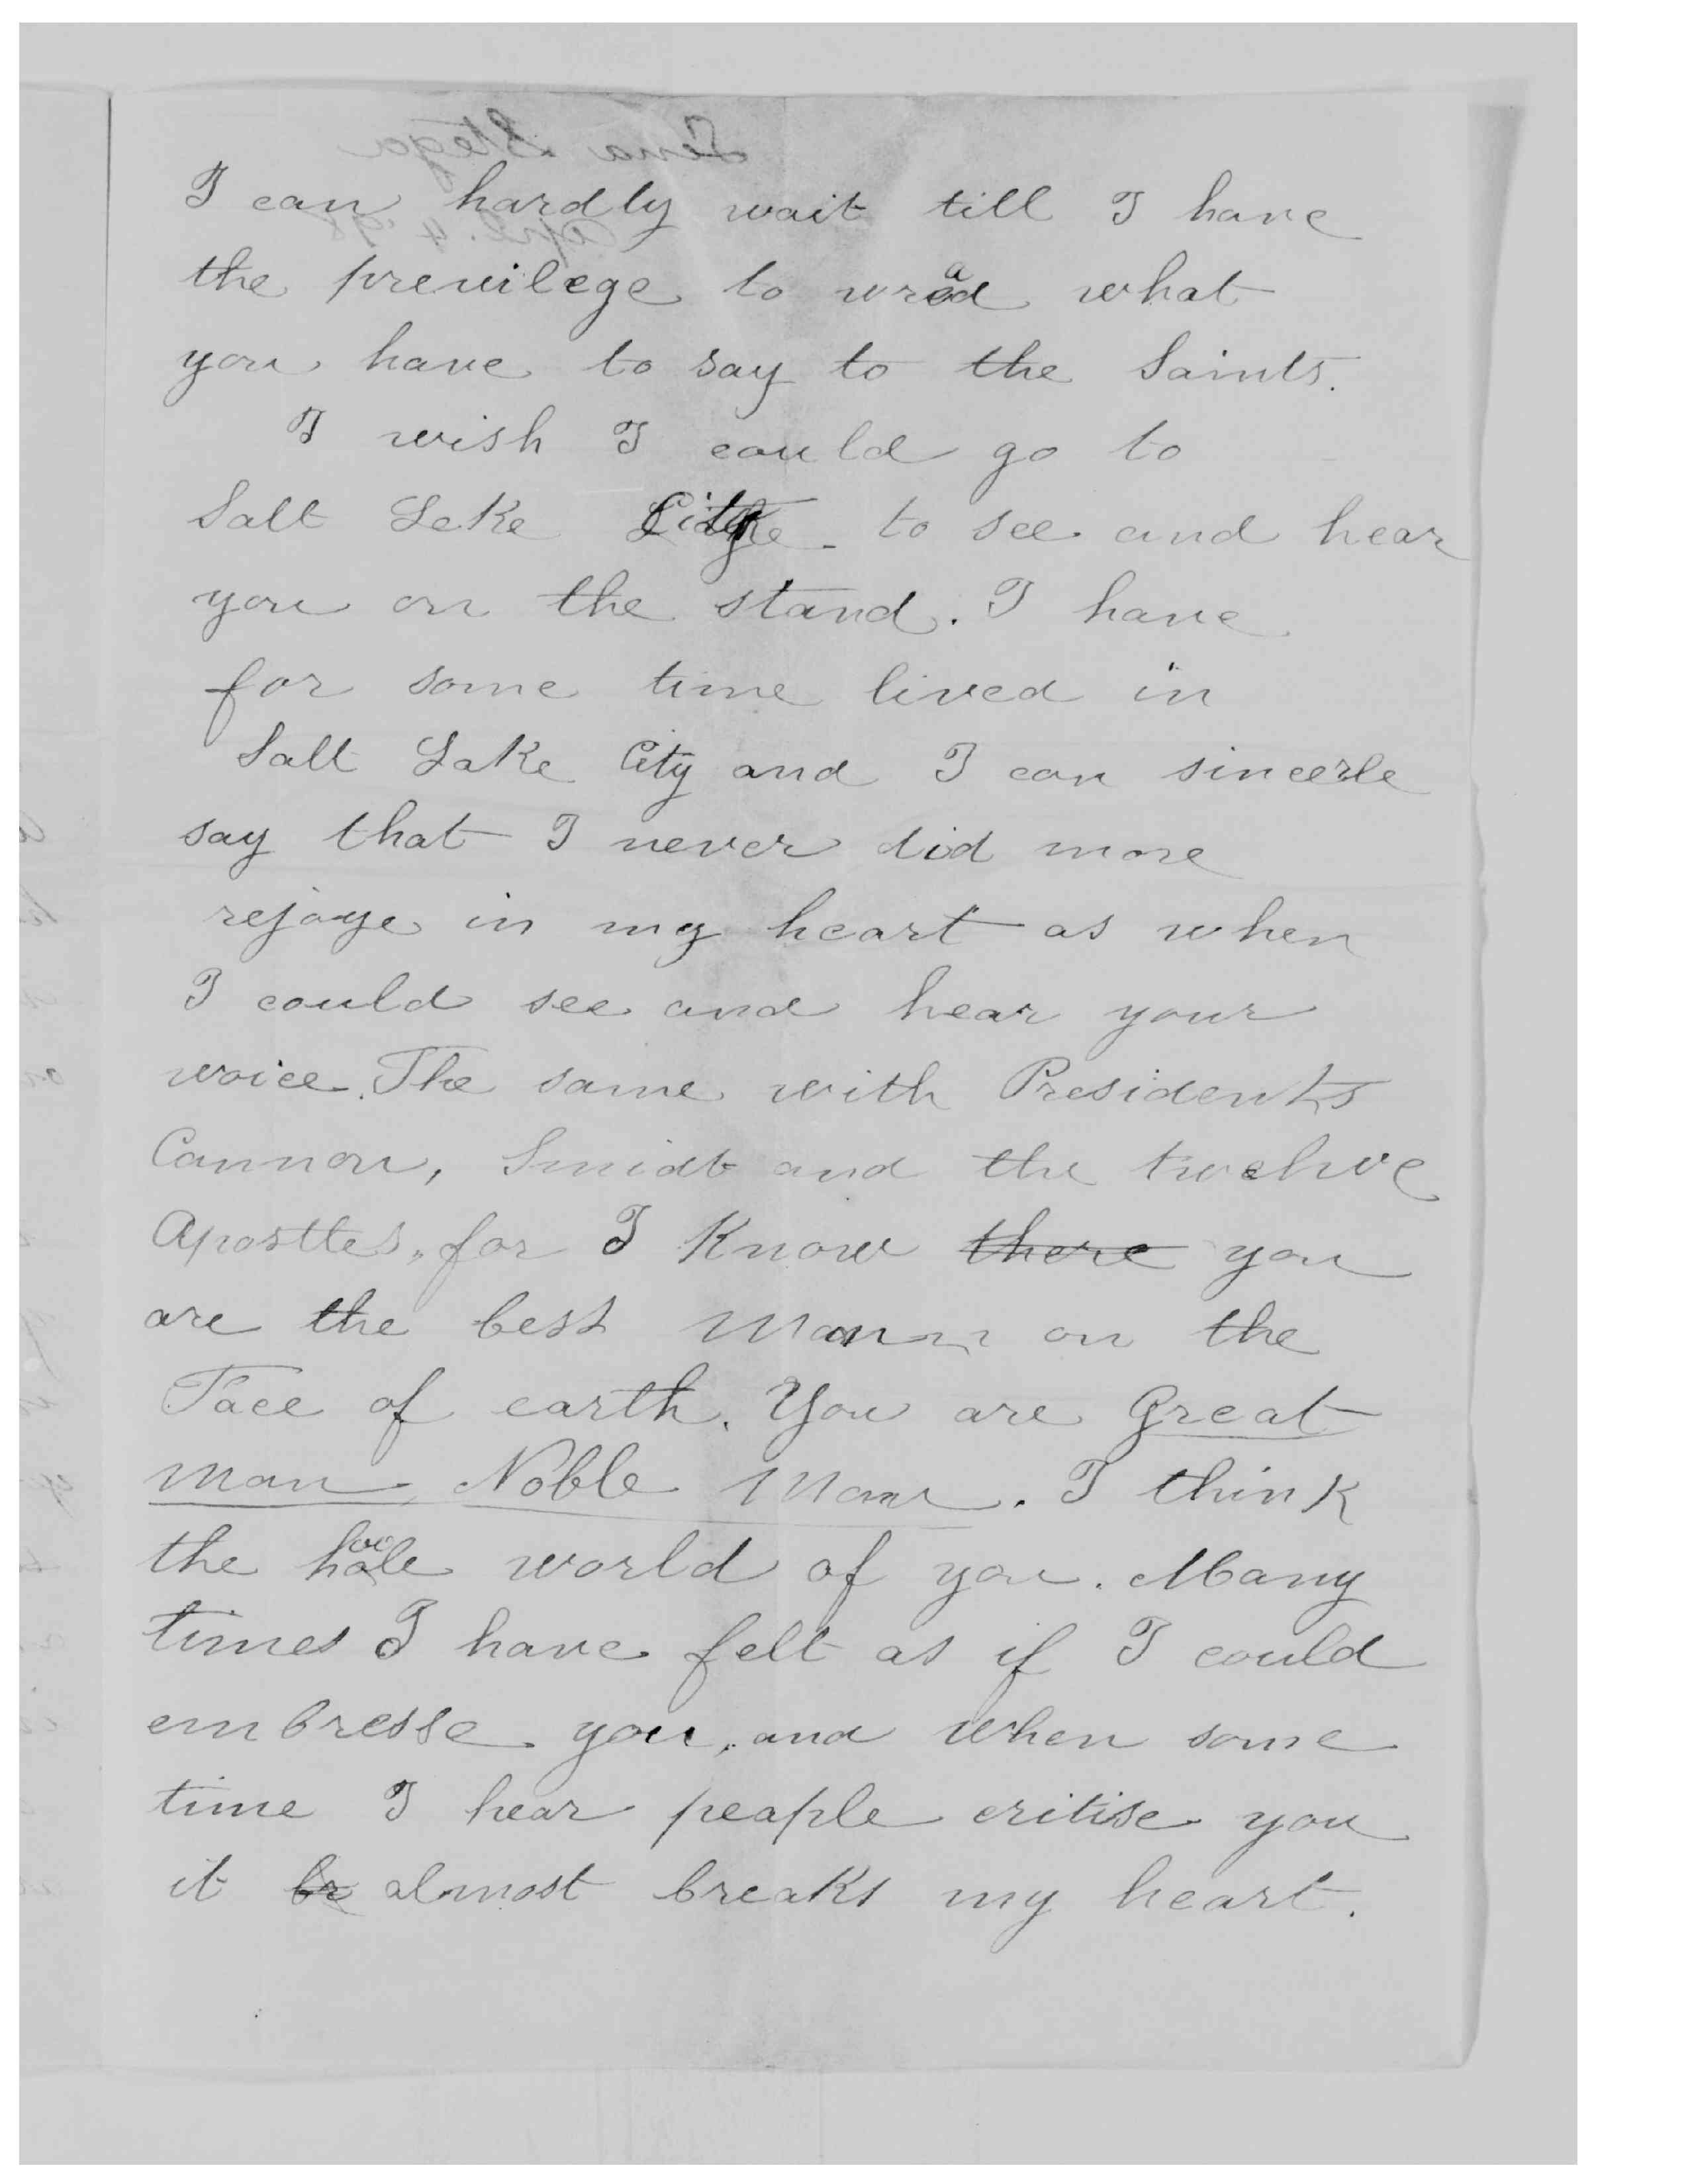 I can hardly wait till I have
the previlege to wread what
you have to say to the Saints.
I wish I could go to
Salt Leke City to see and hear
you on the stand. I have
for some time lived in
Salt Lake City and I can sincerle
say that I never did more
rejoye in my heart as when
I could see and hear your
woice. The same with Presidents
Cannon, Smidt and the twelwe
Aposttes, for I know there you
are the best Mann on the
Face of earth. You are Great
man, Noble Man. I think
the hoole world of you. Many
times I have felt as if I could
embresse you, and when some
time I hear peaple critise you
it br almost breaks my heart.